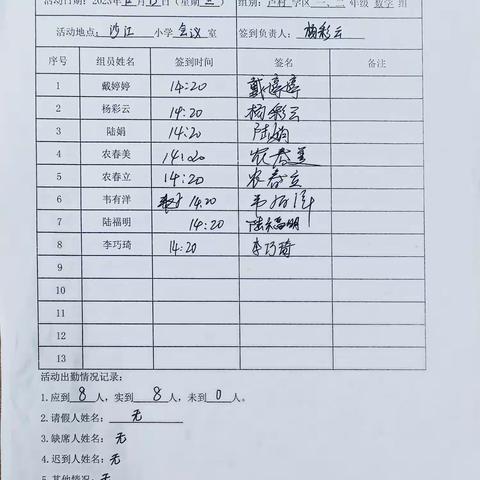 活动日期：2023年12月13日（星期三） 组别：芦村 学区 一、二 年级 数学 组
活动地点：沙江 小学 会议 室 签到负责人：杨彩云
序号 组员姓名 签到时间 签名 备注
1 戴婷婷 14:20 戴婷婷
2 杨彩云 14:20 杨彩云
3 陆娟 14:20 陆娟
4 农春美 14:20 农春美
5 农春立 14:20 农春立
6 韦有洋 14:20 韦有洋
7 陆福明 14:20 陆福明
8 李巧琦 14:20 李巧琦
9
10
11
12
13
活动出勤情况记录：
1.应到 8 人，实到 8 人，未到 0 人。
2.请假人姓名： 无
3.缺席人姓名：无
4.迟到人姓名：无
5.其他情况：无